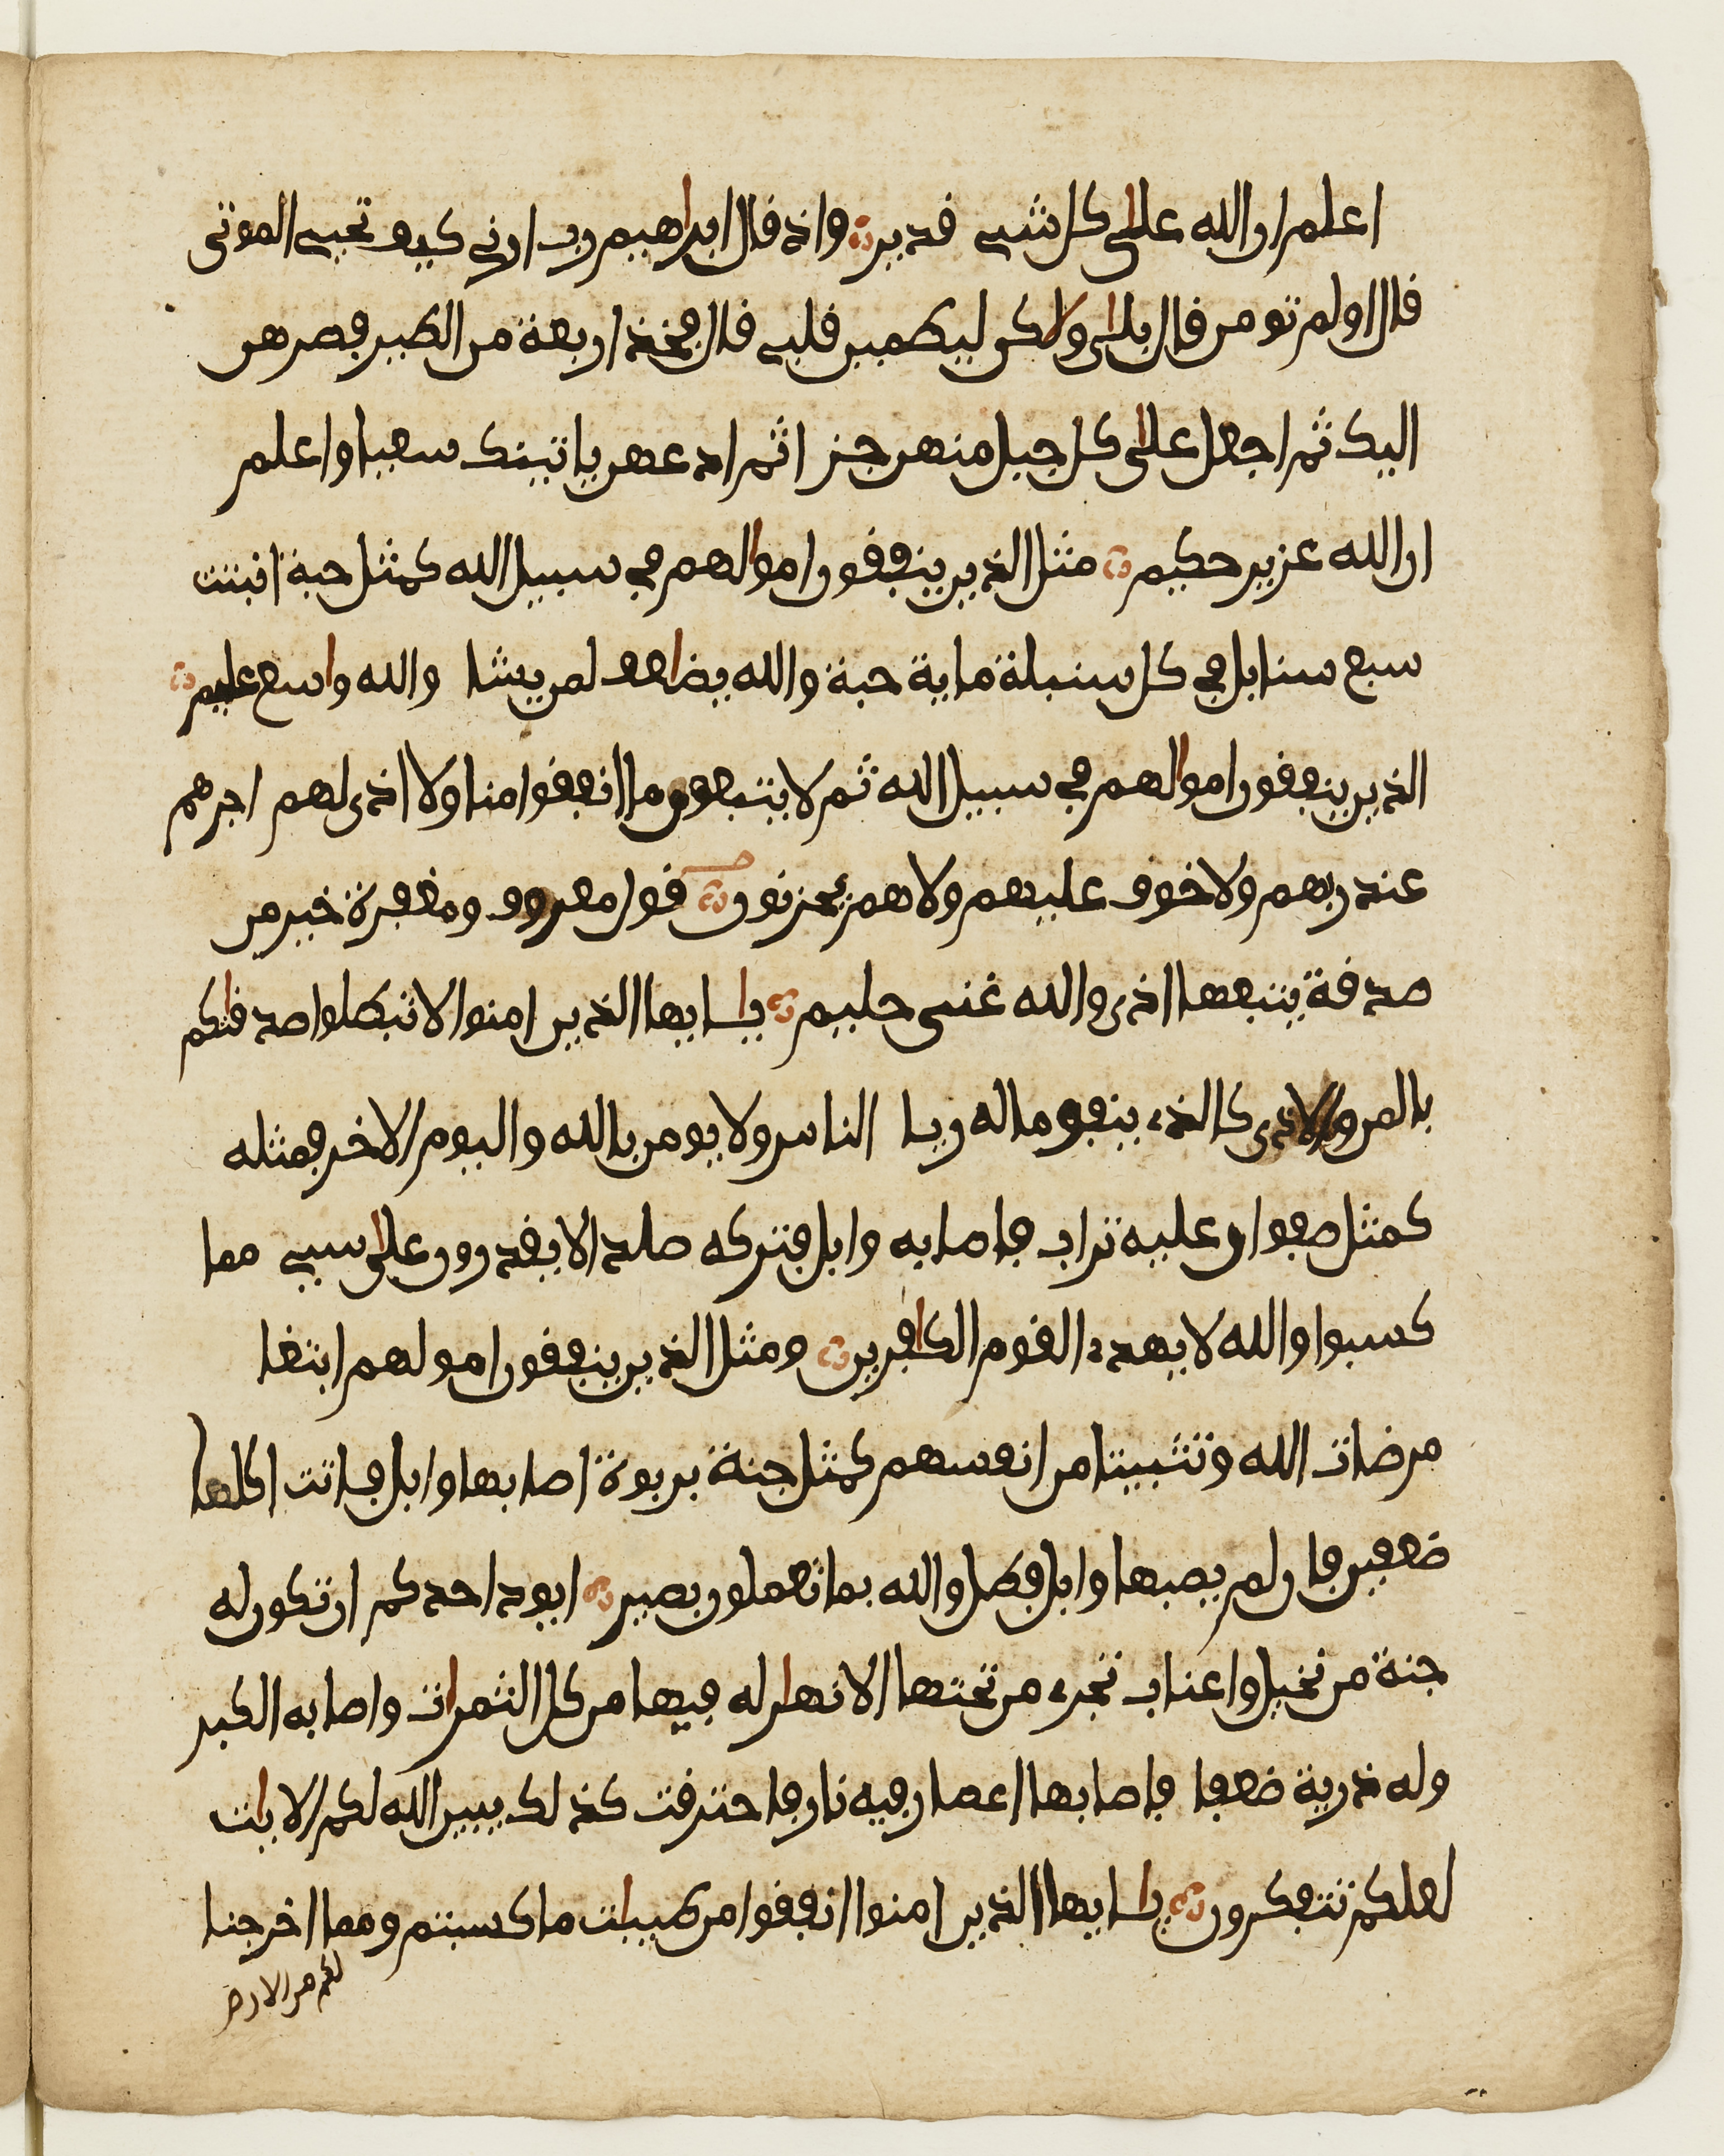 اعلم ان الله على كل شي قدير واذ قال ابراهيم رب ارني كيف تحيي الموتى
قال اولم تومن قال بلى ولاكن ليطمين قلبي قال فخذ اربعة من الطير فصرهن
اليك ثم اجعل على كل جبل منهن جزا ثم ادعهن ياتينك سعيا واعلم
ان الله عزيز حكيم مثل الذين ينفقون اموالهم في سبيل الله كمثل حبة انبتت
سبع سنابل في كل سنبلة ماية حبة والله يضاعف لمن يشا والله واسع عليم
الذين ينفقون اموالهم في سبيل الله ثم لا يتبعون ما انفقوا منا ولا اذى لهم اجرهم
عند ربهم ولا خوف عليهم ولا هم يحزنون قول معروف ومغفرة خير من
صدقة يتبعها اذى والله غني حليم يايها الذين امنوا لا تبطلوا صدقاتكم
بالمن والاذى كالذي ينفق ماله ريا الناس ولا يومن بالله واليوم الاخر فمثله
كمثل صفوان عليه تراب فاصابه وابل فتركه صلدا لا يقدرون على شي مما
كسبوا والله لا يهدي القوم الكافرين ومثل الذين ينفقون امولهم ابتغا
مرضات الله وتثبيتا من انفسهم كمثل جنة بربوة اصابها وابل فاتت اكلها
ضعفين فان لم يصبها وابل فطل والله بما تعملون بصير ايود احدكم ان تكون له
جنة من نخيل واعناب تجري من تحتها الانهار له فيها من كل الثمرات واصابه الكبر
وله ذرية ضعفا فاصابها اعصار فيه نار فاحترقت كذلك يبين الله لكم الايات
لعلكم تتفكرون يايها الذين امنوا انفقوا من طيبات ما كسبتم ومما اخرجنا
لكم من الارض